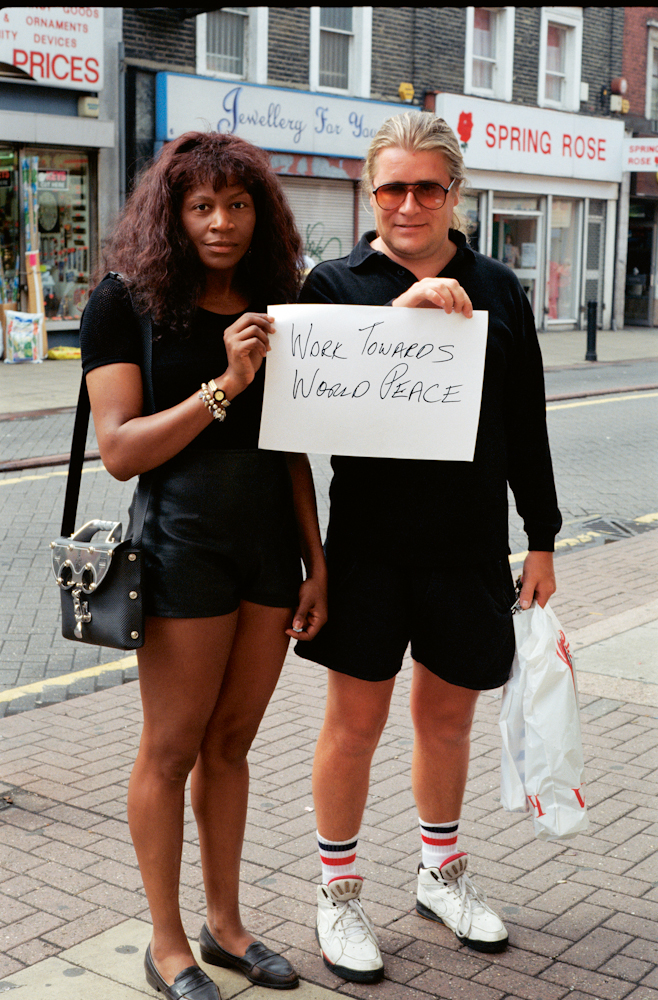 & ORNAMENTS
DEVICES
PRICES
Jewellery For You
SPRING ROSE
SPRING
ROSE
WORK TOWARDS
WORLD PEACE